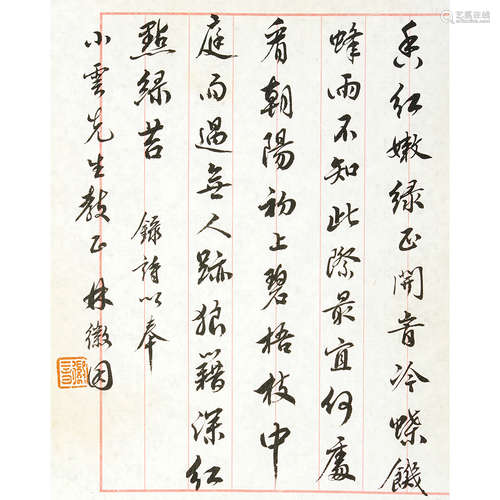 香紅嫩緑正開旹冷蝶饑
蜂兩不知此際最宜何處
看朝陽初上碧梧枝中
庭雨過無人跡狼籍深紅
點緑苔 錄詩以奉
小雲先生教正 林徽因
徽音